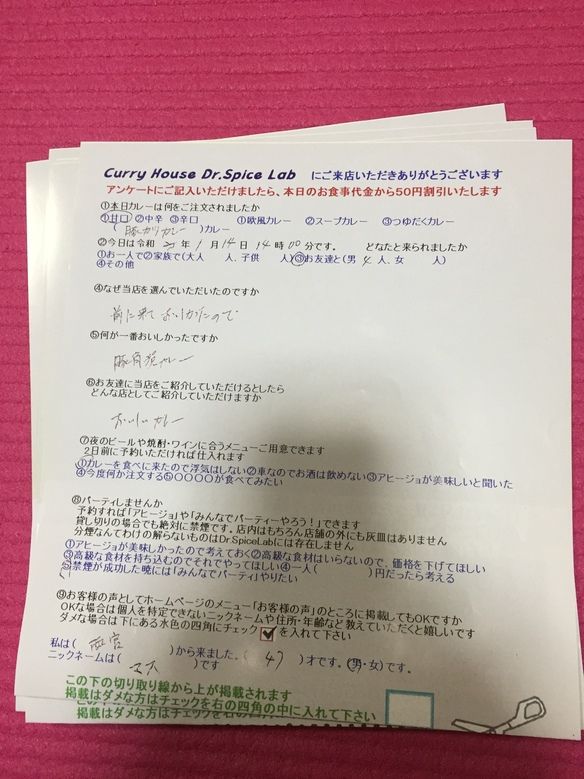 Curry House Dr.Spice Lab にご来店いただきありがとうございます
アンケートにご記入いただけましたら、本日のお食事代金から50円割引いたします
①本日カレーは何をご注文されましたか
①甘口 ②中辛 ③辛口 ①欧風カレー ②スープカレー ③つゆだくカレー
( カレー )カレー
②今日は令和 年 1 月 14 日 14 時 00 分です。 どなたと来られましたか
①お一人で②家族で(大人 人、子供 人)③お友達と(男 4 人、女 人)
④その他
④なぜ当店を選んでいただいたのですか
前に来ておいしかったので
⑤何が一番おいしかったですか
豚角煮カレー
⑥お友達に当店をご紹介していただけるとしたら
どんな店としてご紹介していただけますか
おいしいカレー
⑦夜のビールや焼酎・ワインに合うメニューご用意できます
2日前に予約いただければ仕入れます
①カレーを食べに来たので浮気はしない②車なのでお酒は飲めない③アヒージョが美味しいと聞いた
④今度何か注文する⑤〇〇〇〇が食べてみたい
⑧パーティしませんか
予約すれば「アヒージョ」や「みんなでパーティーやろう!」できます
貸し切りの場合でも絶対に禁煙です。店内はもちろん店舗の外にも灰皿はありません
分煙なんてわけの解らないものはDr.SpiceLabには存在しません
①アヒージョが美味しかったので考えておく②高級な食材はいらないので、価格を下げてほしい
③高級な食材を持ち込むのでそれでやってほしい④一人( )円だったら考える
⑤禁煙が成功した暁には「みんなでパーティ」やりたい
⑨お客様の声としてホームページのメニュー「お客様の声」のところに掲載してもOKですか
OKな場合は個人を特定できないニックネームや住所・年齢など教えていただくと嬉しいです
ダメな場合は下にある水色の四角にチェック を入れて下さい
私は( 西宮 )から来ました。( 47 )才です。(男・女)です。
ニックネームは( )です
この下の切り取り線から上が掲載されます
掲載はダメな方はチェックを右の四角の中に入れて下さい